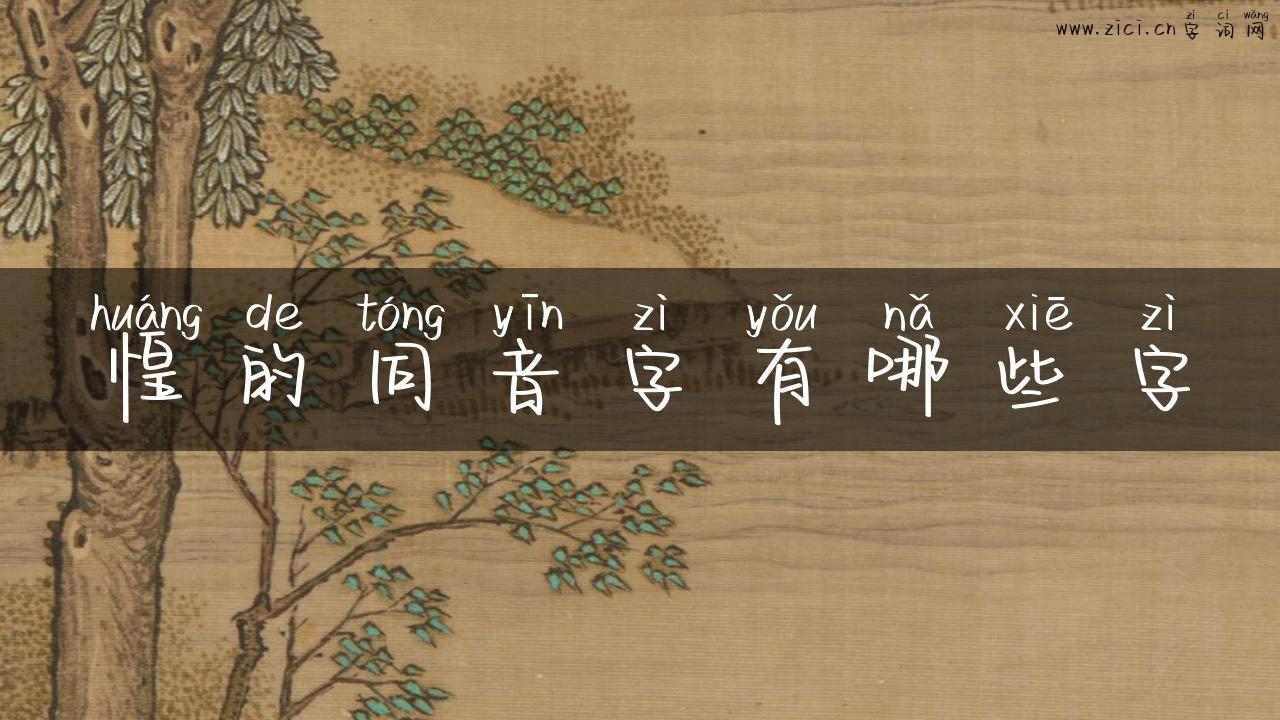 zì cí wǎng
www.zici.cn字词网
huáng de tóng yīn zì yǒu nǎ xiē zì
惶的同音字有哪些字